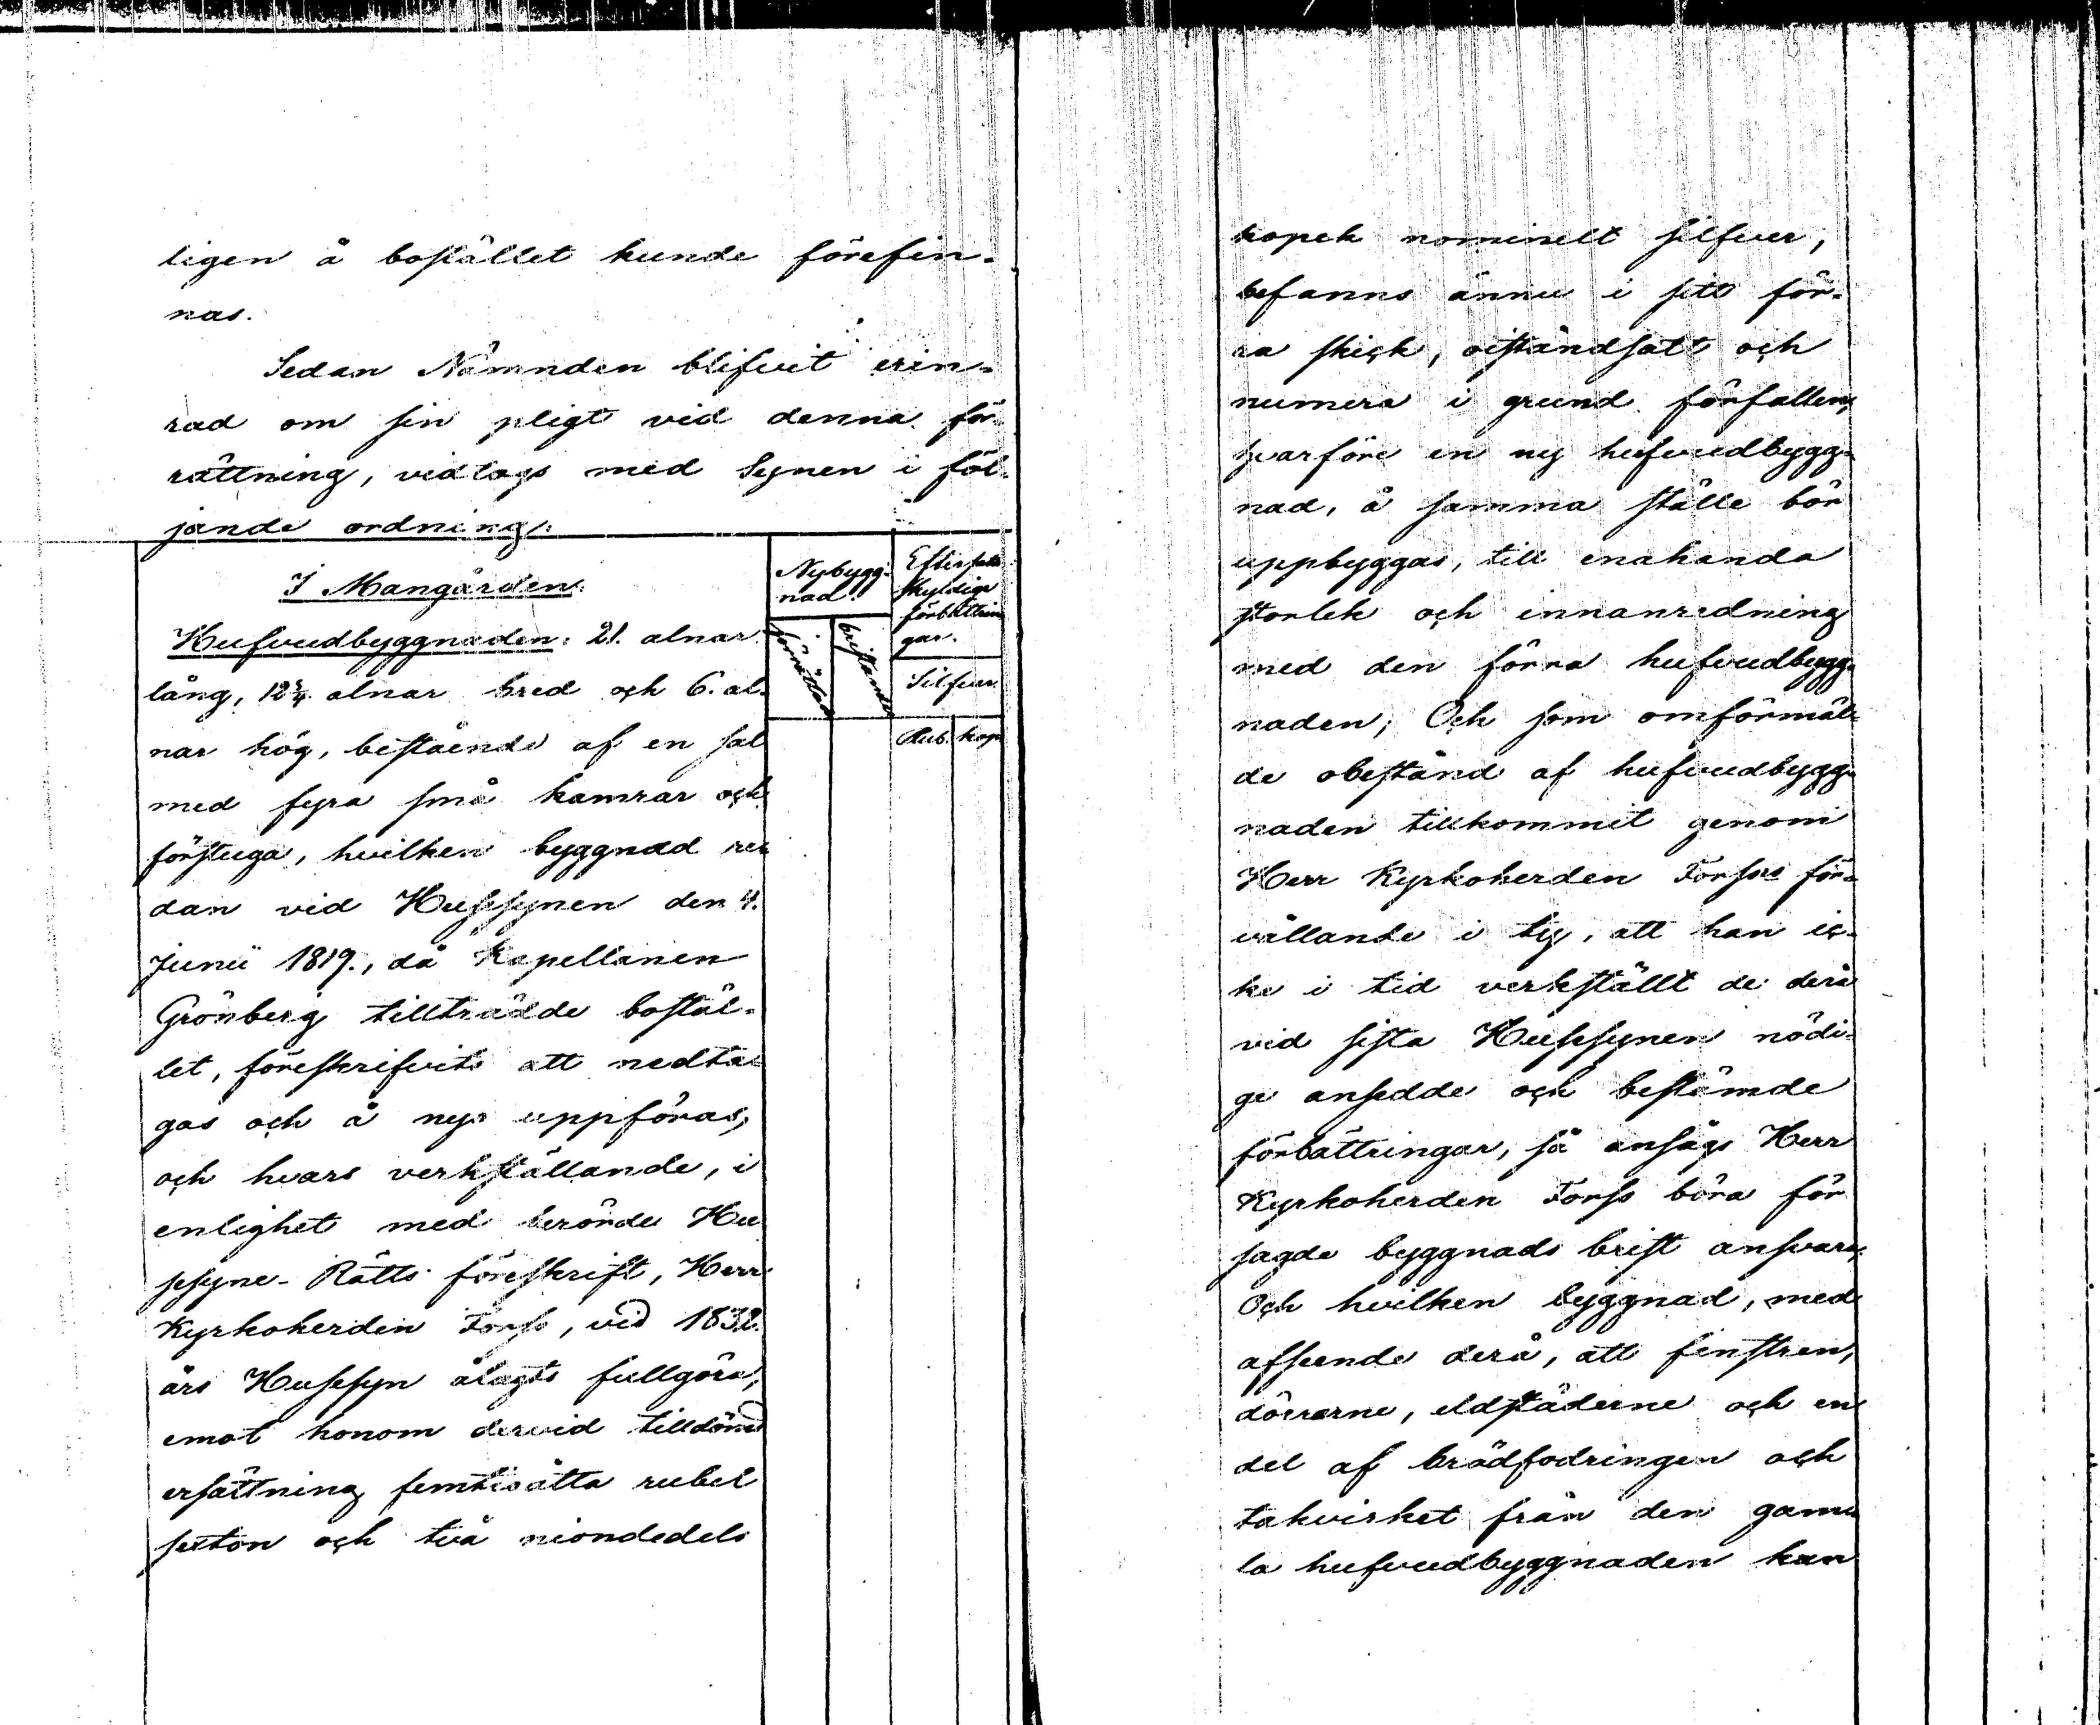 ligen å bostället kunde förefin-
nas.
Sedan Nämnden blifvit erin-
rad om sin pligt vid denna för-
rättning, vidtogs med Synen i föl-
jande ordning:
I Mangården.
Hufvudbyggnaden: 21. alnar
lång, 12¾ alnar bred och 6. al-
nar hög, bestående af en sal
med fyra små kamrar och
förstuga, hvilken byggnad re-
dan vid Hussynen den 4.
Junii 1819., då Kapellanen
Grönberg tillträdde bostäl-
let, föreskrifvits att nedta-
gas och å nyo uppföras,
och hvars verkställande, i
enlighet med berörde Hu-
ssyne-Rätts föreskrift, Herr
Kyrkoherden Forss, vid 1832.
års Hussyn ålagts fullgöra,
emot honom dervid tilldömd
ersättning femtioåtta rubel
sexton och två niondedels
Nybygg-
nad.
förrättad
bristande
Efterträ
skyldige
förbättrin
gar.
Silfver.
Rub. kop.
kopek nominelt silfver,
befanns ännu i sitt för-
ra skick, oiståndsatt och
numera i grund förfallen,
hvarföre en ny hufvudbygg-
nad, å samma ställe bör
uppbyggas, till enahanda
storlek och innanredning
med den förra hufvudbygg-
naden; Och som omförmäl-
de obestånd af hufvudbygg-
naden tillkommit genom
Herr Kyrkoherden Forsses för-
vållande i ty, att han ic-
ke i tid verkställt de derå
vid sista Hussynen nödi-
ge ansedde och bestämde
förbättringar, så ansågs Herr
Kyrkoherden Forss böra för
sagde byggnads brist ansvara,
Och hvilken byggnad, med
afseende derå, att fenstren,
dörrarne, eldstäderne och en
del af brädfodringen och
takvirket från den gam-
la hufvudbyggnaden kan